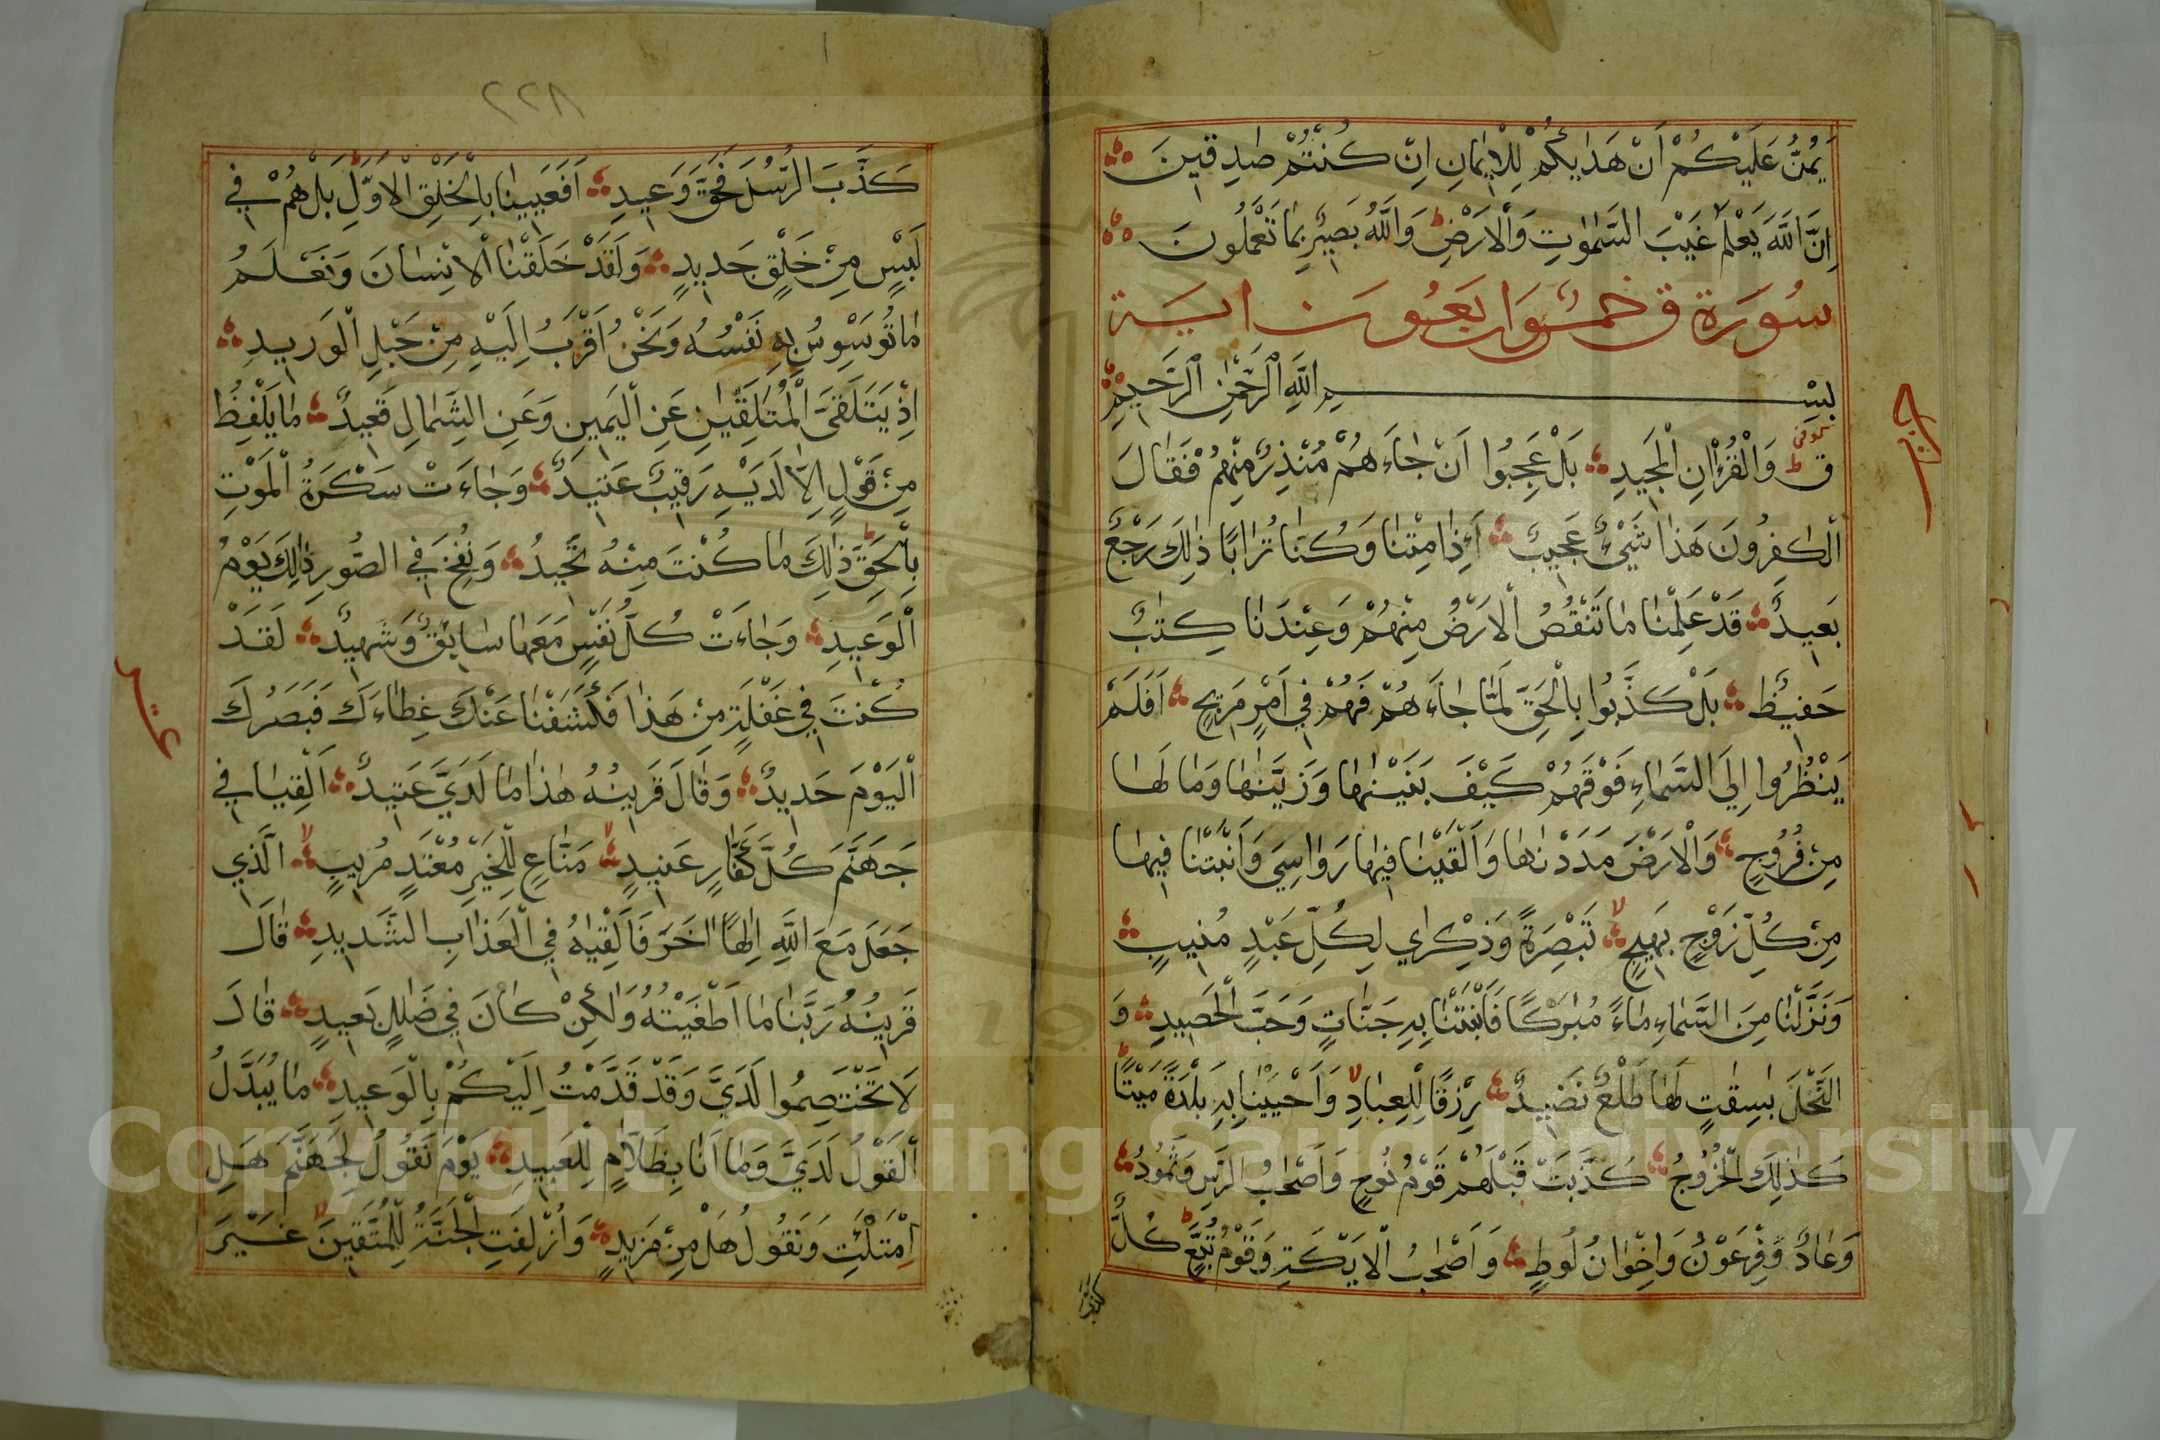 يَمُنُّ عَلَيْكُمْ اَنْ هَدٰيكُمْ لِلْاِيمَانِ اِنْ كُنْتُمْ صٰدِقِينَ
اِنَّ اللّٰهَ يَعْلَمُ غَيْبَ السَّمٰوٰتِ وَالْاَرْضِ ط وَاللّٰهُ بَصِيرٌ بِمَا تَعْمَلُونَ
سُورَة ق خمس واربعون اية
بِسْمِ اللّٰهِ الرَّحْمٰنِ الرَّحِيمِ
ق ط وَالْقُرْاٰنِ الْمَجِيدِ بَلْ عَجِبُوا اَنْ جَاءَهُمْ مُنْذِرٌ مِنْهُمْ فَقَالَ
الْكٰفِرُونَ هَذَا شَيْءٌ عَجِيبٌ ءَاِذَا مِتْنَا وَكُنَّا تُرَابًا ذٰلِكَ رَجْعٌ
بَعِيدٌ قَدْ عَلِمْنَا مَا تَنْقُصُ الْاَرْضُ مِنْهُمْ وَعِنْدَنَا كِتٰبٌ
حَفِيظٌ بَلْ كَذَّبُوا بِالْحَقِّ لَمَّا جَاءَهُمْ فَهُمْ فِي اَمْرٍ مَرِيجٍ اَفَلَمْ
يَنْظُرُوا اِلَي السَّمَاءِ فَوْقَهُمْ كَيْفَ بَنَيْنٰهَا وَزَيَّنّٰهَا وَمَا لَهَا
مِنْ فُرُوجٍ وَالْاَرْضَ مَدَدْنٰهَا وَاَلْقَيْنَا فِيهَا رَوَاسِيَ وَاَنْبَتْنَا فِيهَا
مِنْ كُلِّ زَوْجٍ بَهِيجٍ تَبْصِرَةً وَذِكْرٰي لِكُلِّ عَبْدٍ مُنِيبٍ
وَنَزَّلْنَا مِنَ السَّمَاءِ مَاءً مُبٰرَكًا فَاَنْبَتْنَا بِهِ جَنّٰاتٍ وَحَبَّ الْحَصِيدِ وَ
النَّخْلَ بٰسِقٰتٍ لَهَا طَلْعٌ نَضِيدٌ رِزْقًا لِلْعِبَادِ وَاَحْيَيْنَا بِهِ بَلْدَةً مَيْتًا ط
كَذٰلِكَ الْخُرُوجُ كَذَّبَتْ قَبْلَهُمْ قَوْمُ نُوحٍ وَاَصْحٰبُ الرَّسِّ وَثَمُودُ
وَعَادٌ وَفِرْعَوْنُ وَاِخْوَانُ لُوطٍ وَاَصْحٰبُ الْاَيْكَةِ وَقَوْمُ تُبَّعٍ ط كُلٌّ
كذب
٨٢٢
كَذَّبَ الرُّسُلَ فَحَقَّ وَعِيدِ اَفَعَيِينَا بِالْخَلْقِ الْاَوَّلِ ط بَلْ هُمْ فِي
لَبْسٍ مِنْ خَلْقٍ جَدِيدٍ وَلَقَدْ خَلَقْنَا الْاِنْسَانَ وَنَعْلَمُ
مَا تُوَسْوِسُ بِهِ نَفْسُهُ وَنَحْنُ اَقْرَبُ اِلَيْهِ مِنْ حَبْلِ الْوَرِيدِ
اِذْ يَتَلَقَّى الْمُتَلَقِّيَانِ عَنِ الْيَمِينِ وَعَنِ الشِّمَالِ قَعِيدٌ مَا يَلْفِظُ
مِنْ قَوْلٍ اِلَّا لَدَيْهِ رَقِيبٌ عَتِيدٌ وَجَاءَتْ سَكْرَةُ الْمَوْتِ
بِالْحَقِّ ط ذٰلِكَ مَا كُنْتَ مِنْهُ تَحِيدُ وَنُفِخَ فِي الصُّورِ ذٰلِكَ يَوْمُ
الْوَعِيدِ وَجَاءَتْ كُلُّ نَفْسٍ مَعَهَا سَائِقٌ وَشَهِيدٌ لَقَدْ
كُنْتَ فِي غَفْلَةٍ مِنْ هَذَا فَكَشَفْنَا عَنْكَ غِطَاءَكَ فَبَصَرُكَ
الْيَوْمَ حَدِيدٌ وَقَالَ قَرِينُهُ هٰذَا مَا لَدَيَّ عَتِيدٌ اَلْقِيَا فِي
جَهَنَّمَ كُلَّ كَفَّارٍ عَنِيدٍ مَنَّاعٍ لِلْخَيْرِ مُعْتَدٍ مُرِيبٍ الَّذِي
جَعَلَ مَعَ اللّٰهِ اِلٰهًا اٰخَرَ فَاَلْقِيٰهُ فِي الْعَذَابِ الشَّدِيدِ قَالَ
قَرِينُهُ رَبَّنَا مَا اَطْغَيْتُهُ وَلٰكِنْ كَانَ فِي ضَلٰلٍ بَعِيدٍ قَالَ
لَا تَخْتَصِمُوا لَدَيَّ وَقَدْ قَدَّمْتُ اِلَيْكُمْ بِالْوَعِيدِ مَا يُبَدَّلُ
الْقَوْلُ لَدَيَّ وَمَا اَنَا بِظَلَّامٍ لِلْعَبِيدِ يَوْمَ نَقُولُ لِجَهَنَّمَ هَلِ
امْتَلَئْتِ وَتَقُولُ هَلْ مِنْ مَزِيدٍ وَاُزْلِفَتِ الْجَنَّةُ لِلْمُتَّقِينَ غَيْرَ
Copyright © King Saud University